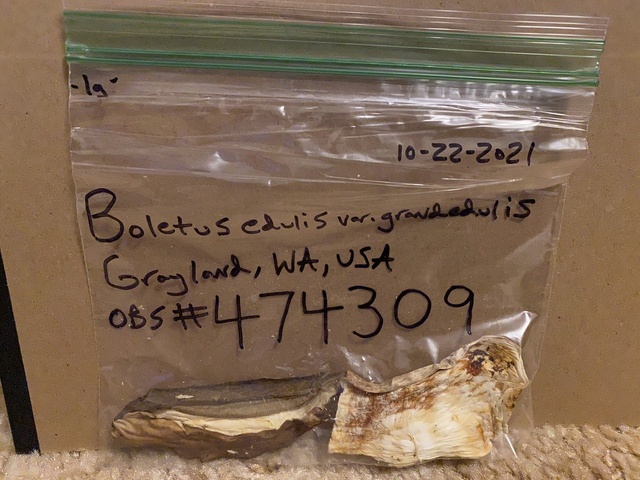 -1g-
10-22-2021
Boletus edulis var. grandedulis
Grayland, WA, USA
OBS #474309